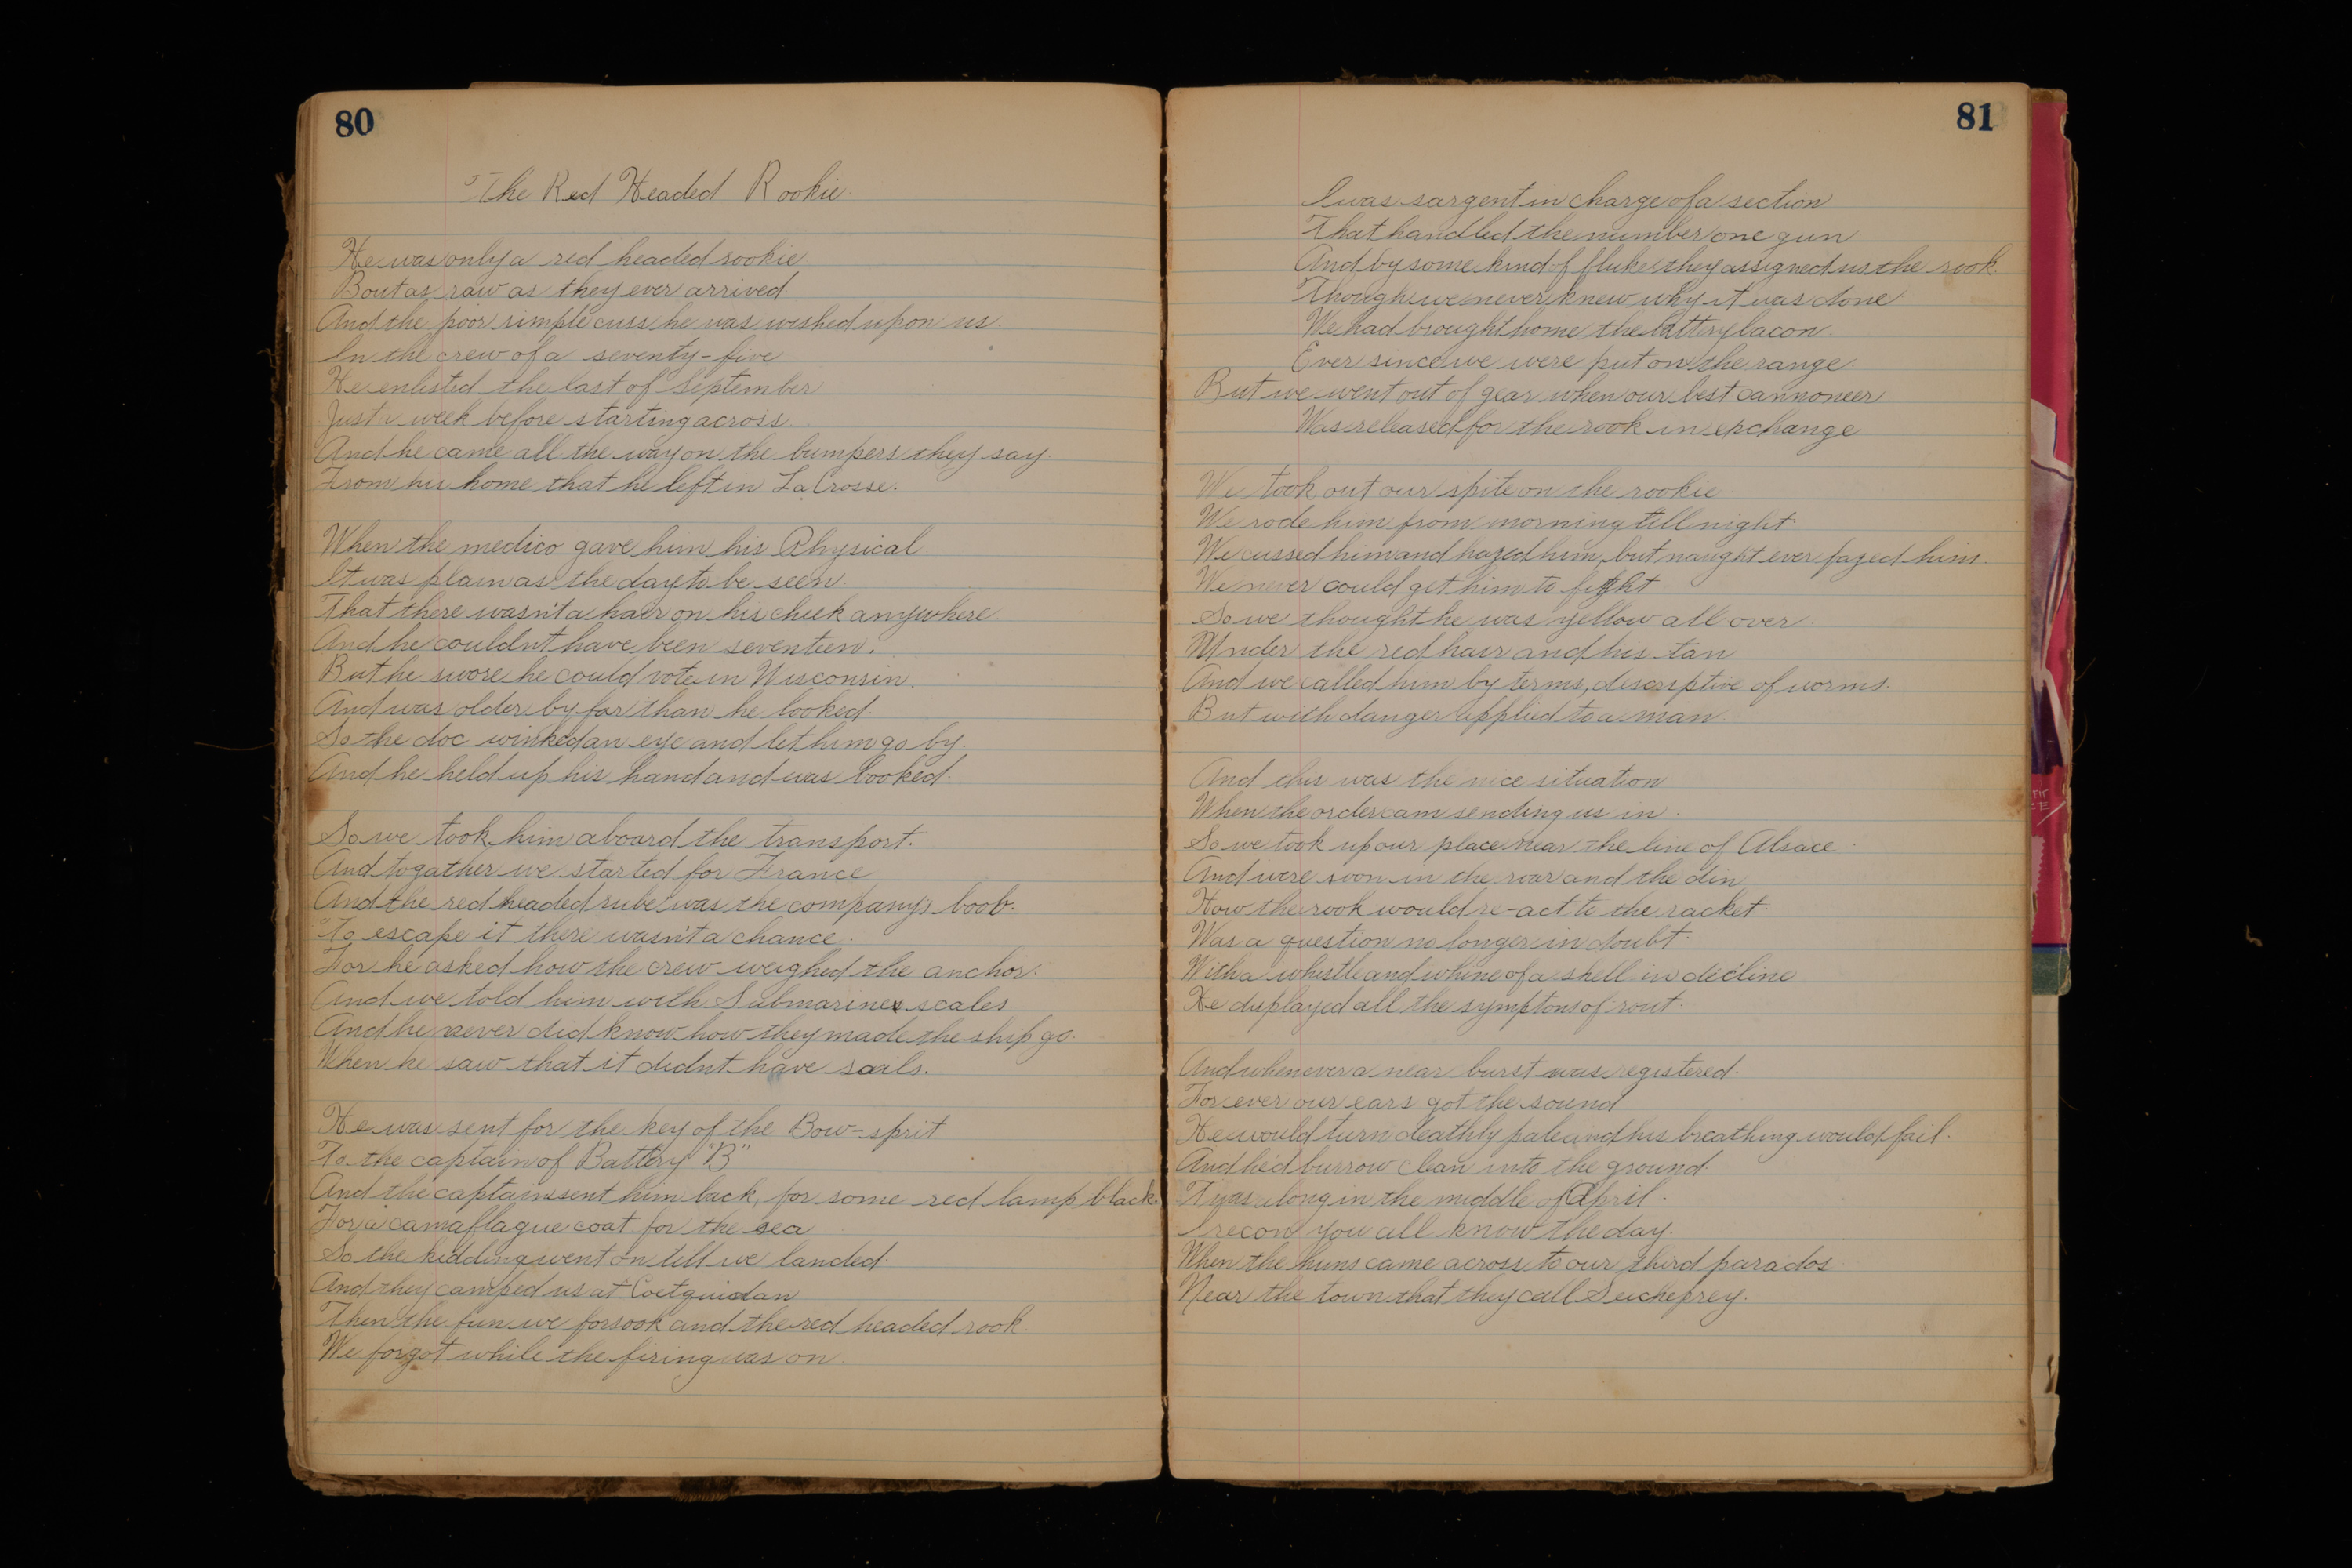 80
The Red Headed Rookie.
He was only a red headed rookie
Bout as raw as they ever arrived.
And the poor simple cuss he was wished upon us.
In the crew of a seventy-five
He enlisted the last of September
Just a week before starting across.
And he came all the way on the bumpers they say.
From his home that he left in La Crosse.
When the medico gave him his Physical.
It was plain as the day to be seen.
That there wasn't a hair on his cheek anywhere.
And he couldn't have been seventeen.
But he swore he could vote in Wisconsin.
And was older by far than he looked
So the doc winked an eye and let him go by.
And he held up his hand and was booked.
So we took him aboard the transport.
And togather we started for France
And the red headed rube was the company's boob.
To escape it there wasn't a chance.
For he asked how the crew weighed the anchor.
And we told him with Submarines scales.
And he never did know how they made the ship go.
When he saw that it didn't have sails.
He was sent for the key of the Bow-sprit
To the captain of Battery "B"
And the captain sent him back, for some red lamp black.
For a camaflague coat for the sea
So the kidding went on till we landed.
And they camped us at Coetquidan
Then the fun we forsook and the red headed rook.
We forgot while the firing was on.
81
I was sargent in charge of a section
That handled the number one gun
And by some kind of fluke they assigned us the rook.
Though we never knew why it was done
We had brought home the battery bacon.
Ever since we were put on the range.
But we went out of gear when our best cannoneer
Was released for the rook in exchange
We took out our spite on the rookie
We rode him from morning till night.
We cussed him and hazed him, but naught ever fazed him.
We never could get him to fight
So we thought he was yellow all over.
Under the red hair and his tan
And we called him by terms, descriptive of worms.
But with danger applied to a man.
And this was the nice situation
When the order cam sending us in.
So we took up our place near the line of Alsace.
And were soon in the roar and the din
How the rook would re-act to the racket.
Was a question no longer in doubt.
With a whistle and whine of a shell in decline
He displayed all the symptons of rout.
And whenever a near burst was registered.
For ever our ears got the sound
He would turn deathly pale and his breathing would fail.
And he'd burrow clean into the ground.
Twas along in the middle of April.
I recon you all know the day.
When the huns came across to our third parados
Near the town that they call Seicheprey.